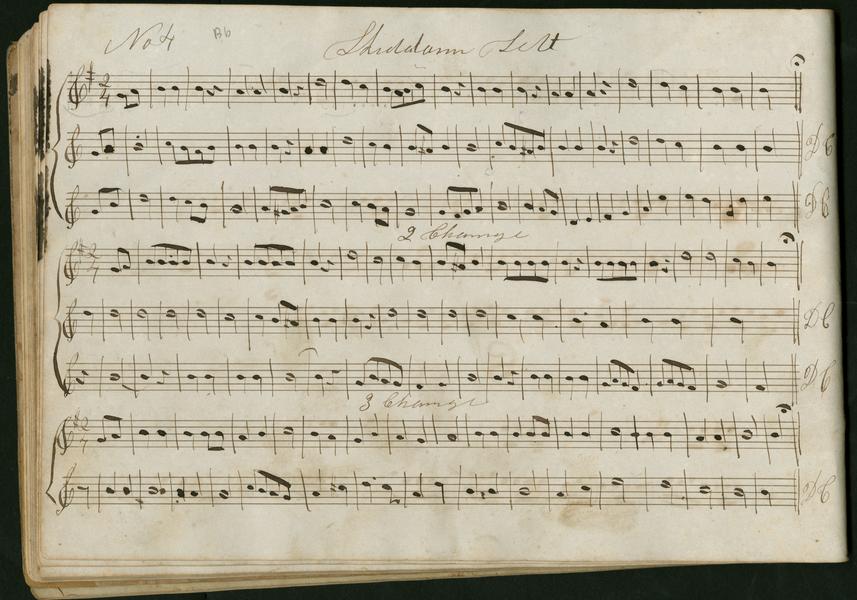 No 4 Bb Sett
2/4
DC
DC
2 Change
2/4
DC
DC
3 Change
2/4
DC